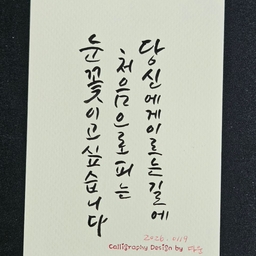 당신에게이르는길에
처음으로피는
눈꽃이고싶습니다
2026.
Calligraphy Design by